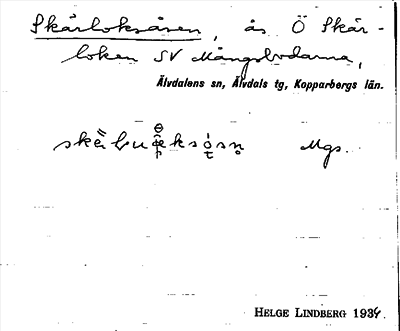 Skårloksåsen, ås Ö Skår-
loken SV Mångsbodarna,
Älvdalens sn, Älvdals tg, Kopparbergs län.
Mgs.
HELGE LINDBERG 1934.